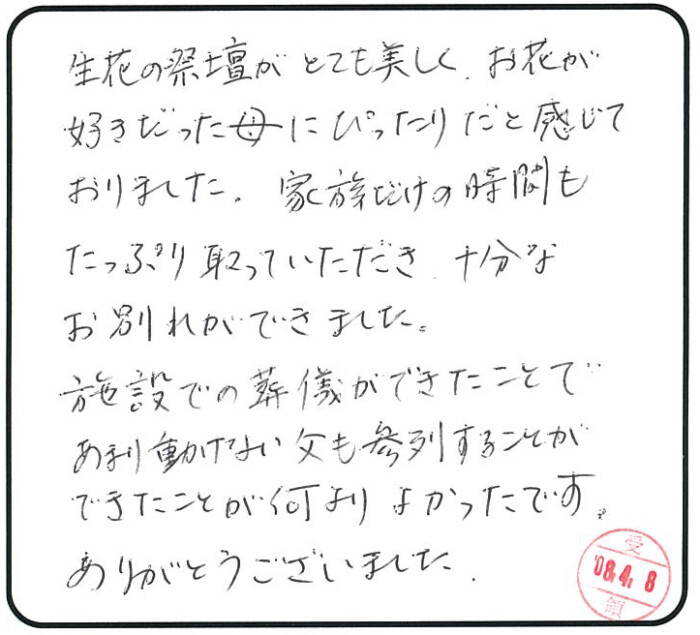 生花の祭壇がとても美しく、お花が
好きだった母にぴったりだと感じて
おりました。家族だけの時間も
たっぷり取っていただき、十分な
お別れができました。
施設での葬儀ができたことで
あまり動けない父も参列することが
できたことが何よりよかったです。
ありがとうございました。
受
'08.4.8
領